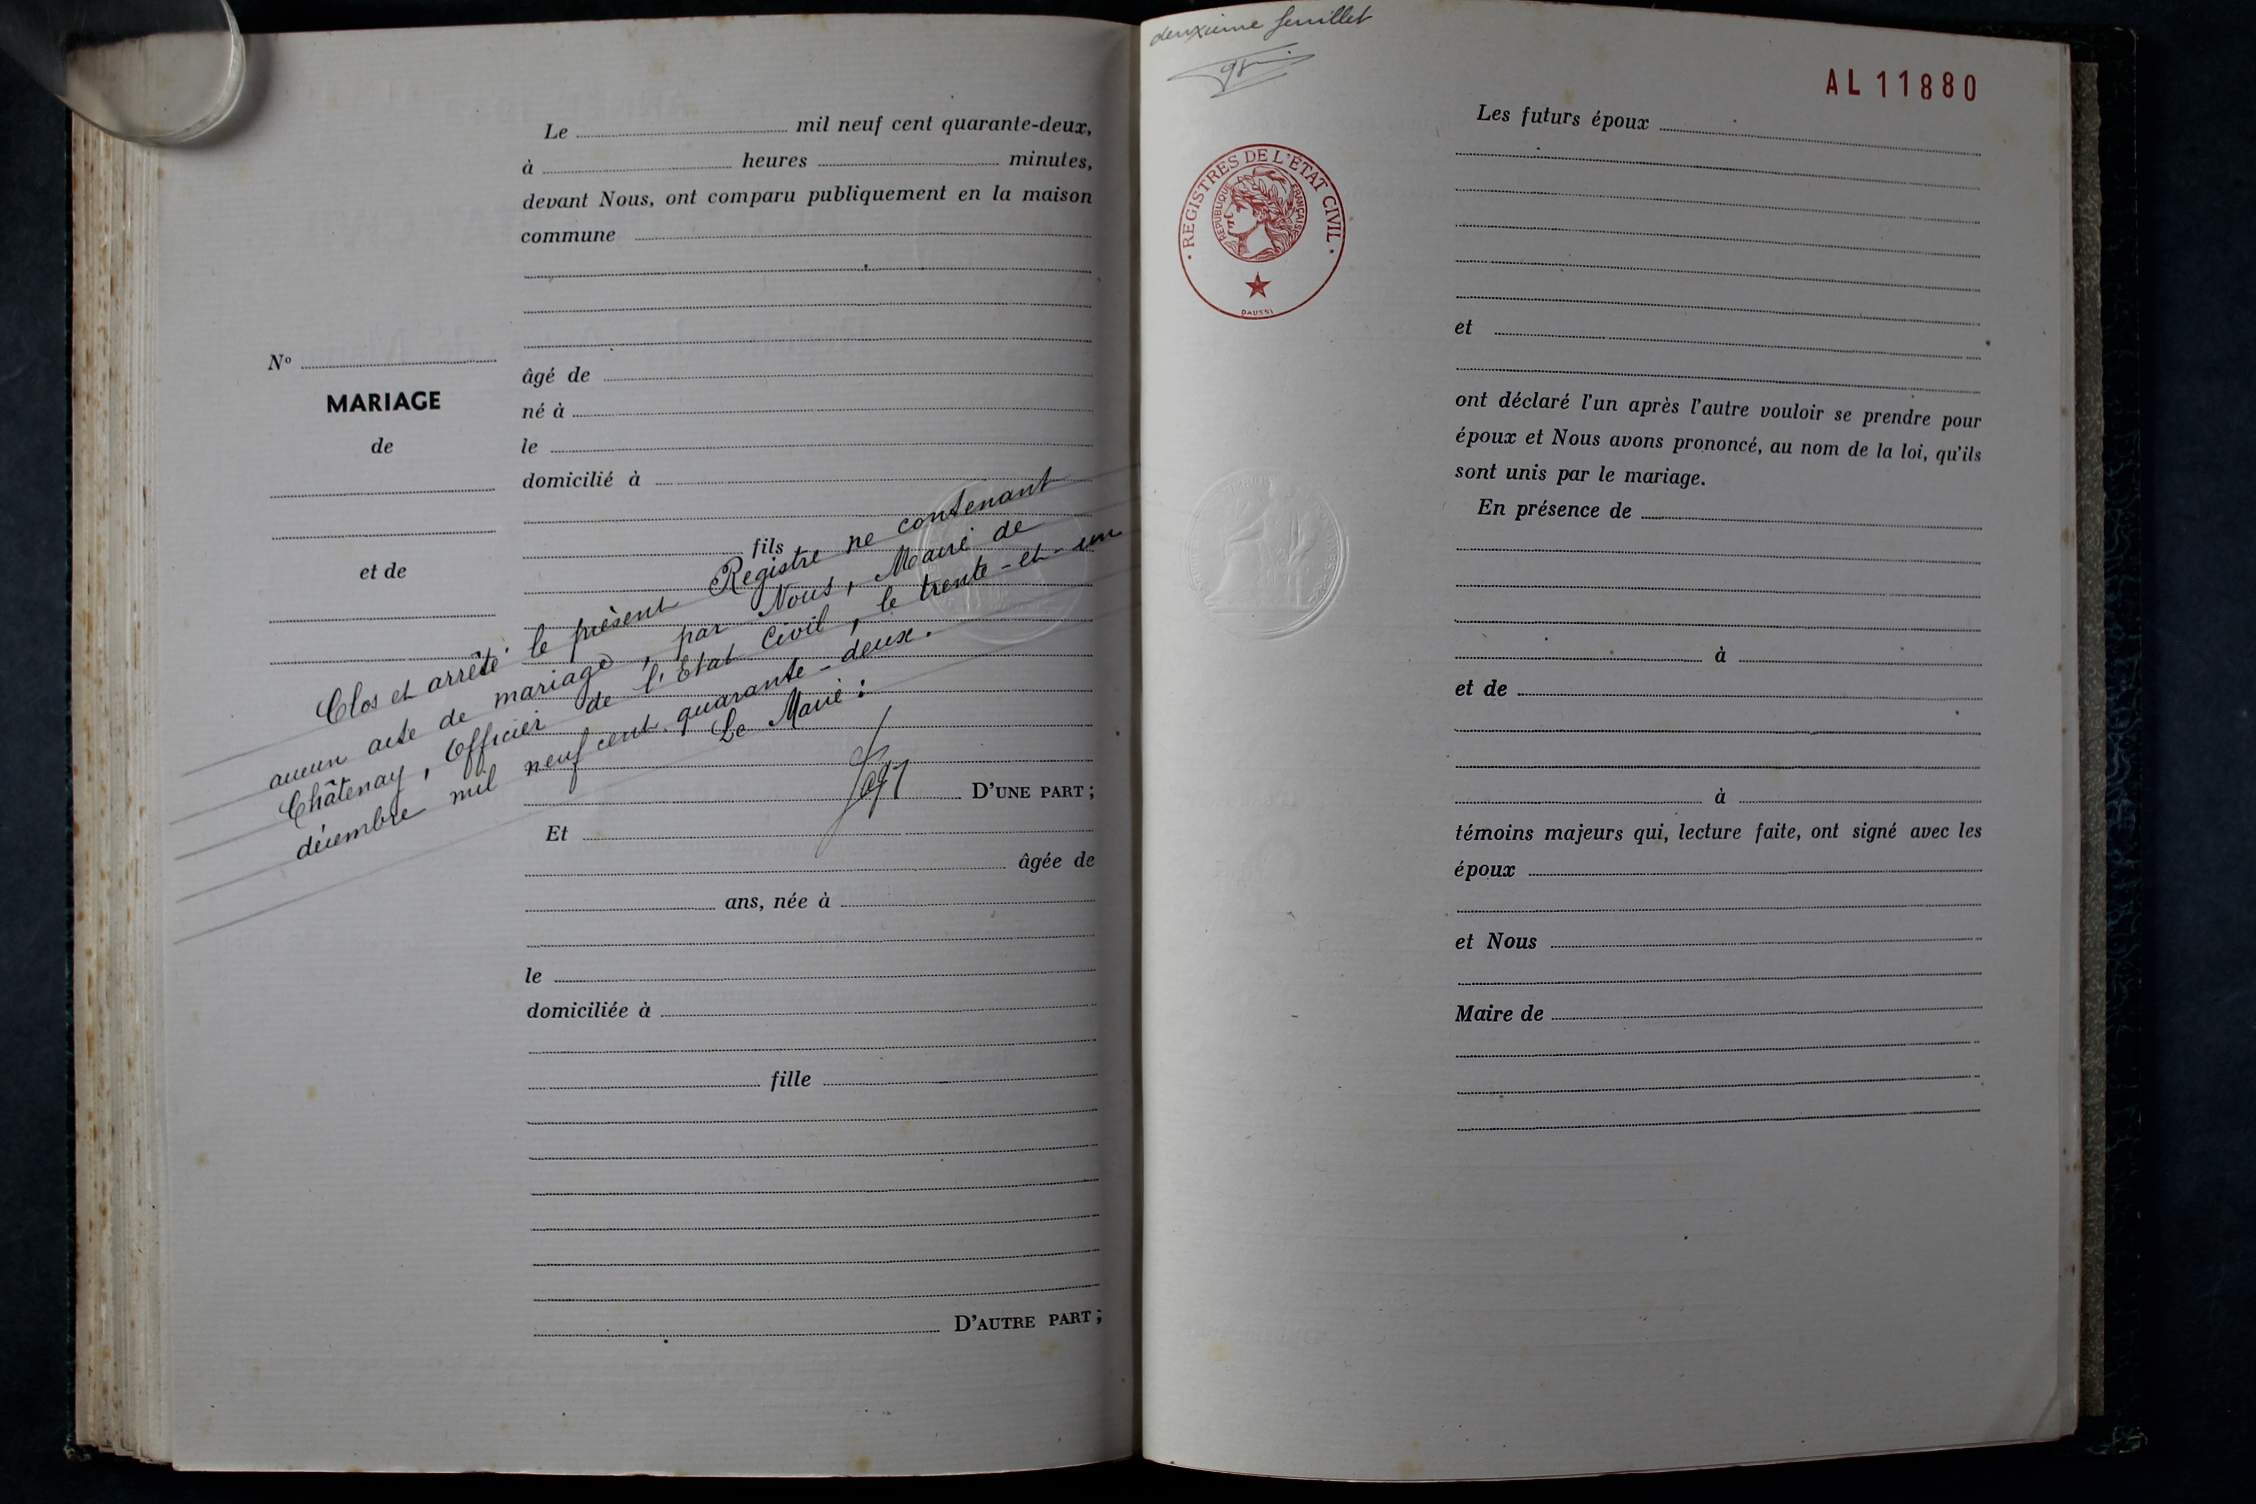 N°
MARIAGE
de
et de
Le mil neuf cent quarante-deux,
à heures minutes,
devant Nous, ont comparu publiquement en la maison
commune
âgé de
né à
le
domicilié à
fils
Clos et arrêté le présent Registre ne contenant
aucun acte de mariage, par Nous, Maire de
Châtenay, Officier de l'Etat Civil, le trente-et-un
décembre mil neuf cent quarante-deux.
Le Maire :
D'UNE PART ;
Et
âgée de
ans, née à
le
domiciliée à
fille
D'AUTRE PART ;
deuxième feuillet
AL 11880
REGISTRES DE L'ÉTAT CIVIL
RÉPUBLIQUE FRANÇAISE
DAUSSI
Les futurs époux
et
ont déclaré l'un après l'autre vouloir se prendre pour
époux et Nous avons prononcé, au nom de la loi, qu'ils
sont unis par le mariage.
En présence de
à
et de
à
témoins majeurs qui, lecture faite, ont signé avec les
époux
et Nous
Maire de